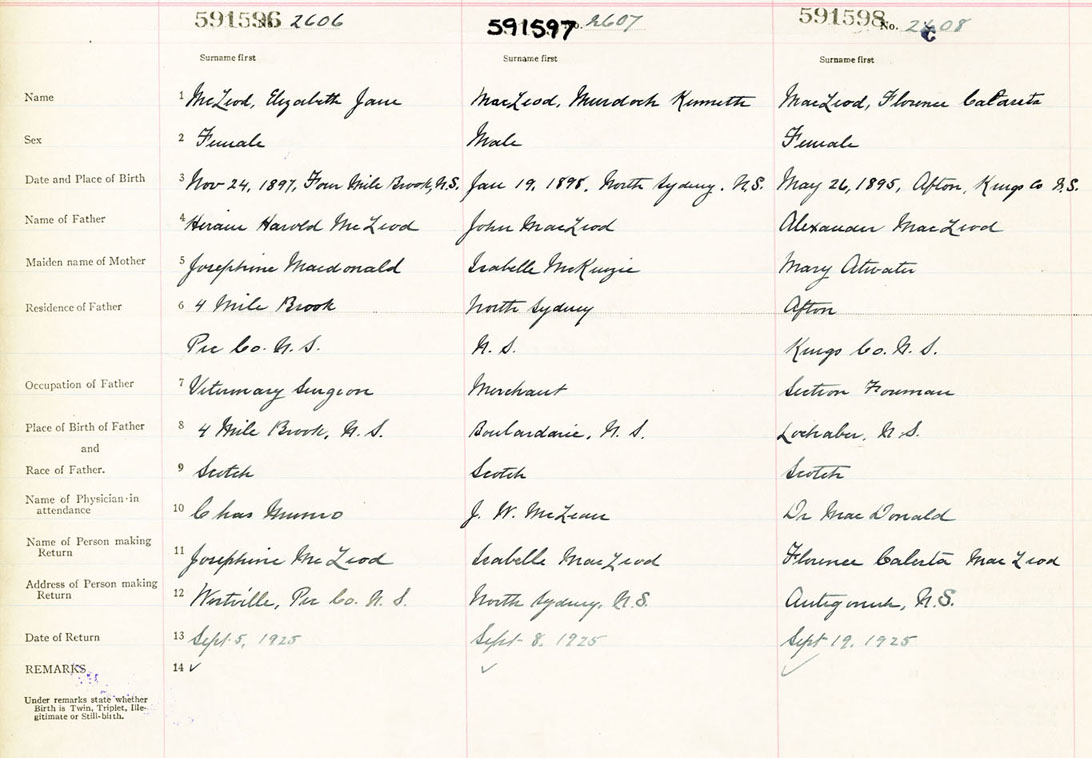 591596 2606 591597 No. 2607 591598 No. 2608
c
Surname first Surname first Surname first
Name 1 McLeod, Elizabeth Jane MacLeod, Murdoch Kenneth MacLeod, Florence
Sex 2 Female Male Female
Date and Place of Birth 3 Nov 24, 1897, Four Mile Brook, N.S. Jan 19, 1898, North Sydney. N.S. May 26, 1895, Afton, Kings Co N.S.
Name of Father 4 Hiram Harold McLeod John MacLeod Alexander MacLeod
Maiden name of Mother 5 Josephine Macdonald Isabelle McKenzie Mary Atwater
Residence of Father 6 4 Mile Brook North Sydney Afton
Pic Co. N.S. N.S. Kings Co. N.S.
Occupation of Father 7 Veterinary Surgeon Merchant Section Foreman
Place of Birth of Father 8 4 Mile Brook, N.S. Boulardarie, N.S. Lochaber, N.S.
and
Race of Father. 9 Scotch Scotch Scotch
Name of Physician in
attendance 10 Chas Munro J. W. McLean Dr MacDonald
Name of Person making
Return 11 Josephine McLeod Isabelle MacLeod Florence Calesta MacLeod
Address of Person making
Return 12 Westville, Pic Co. N.S. North Sydney, N.S. Antigonish, N.S.
Date of Return 13 Sept 5, 1925 Sept 8, 1925 Sept 19, 1925
REMARKS 14
Under remarks state whether
Birth is Twin, Triplet, Ille-
gitimate or Still-birth.